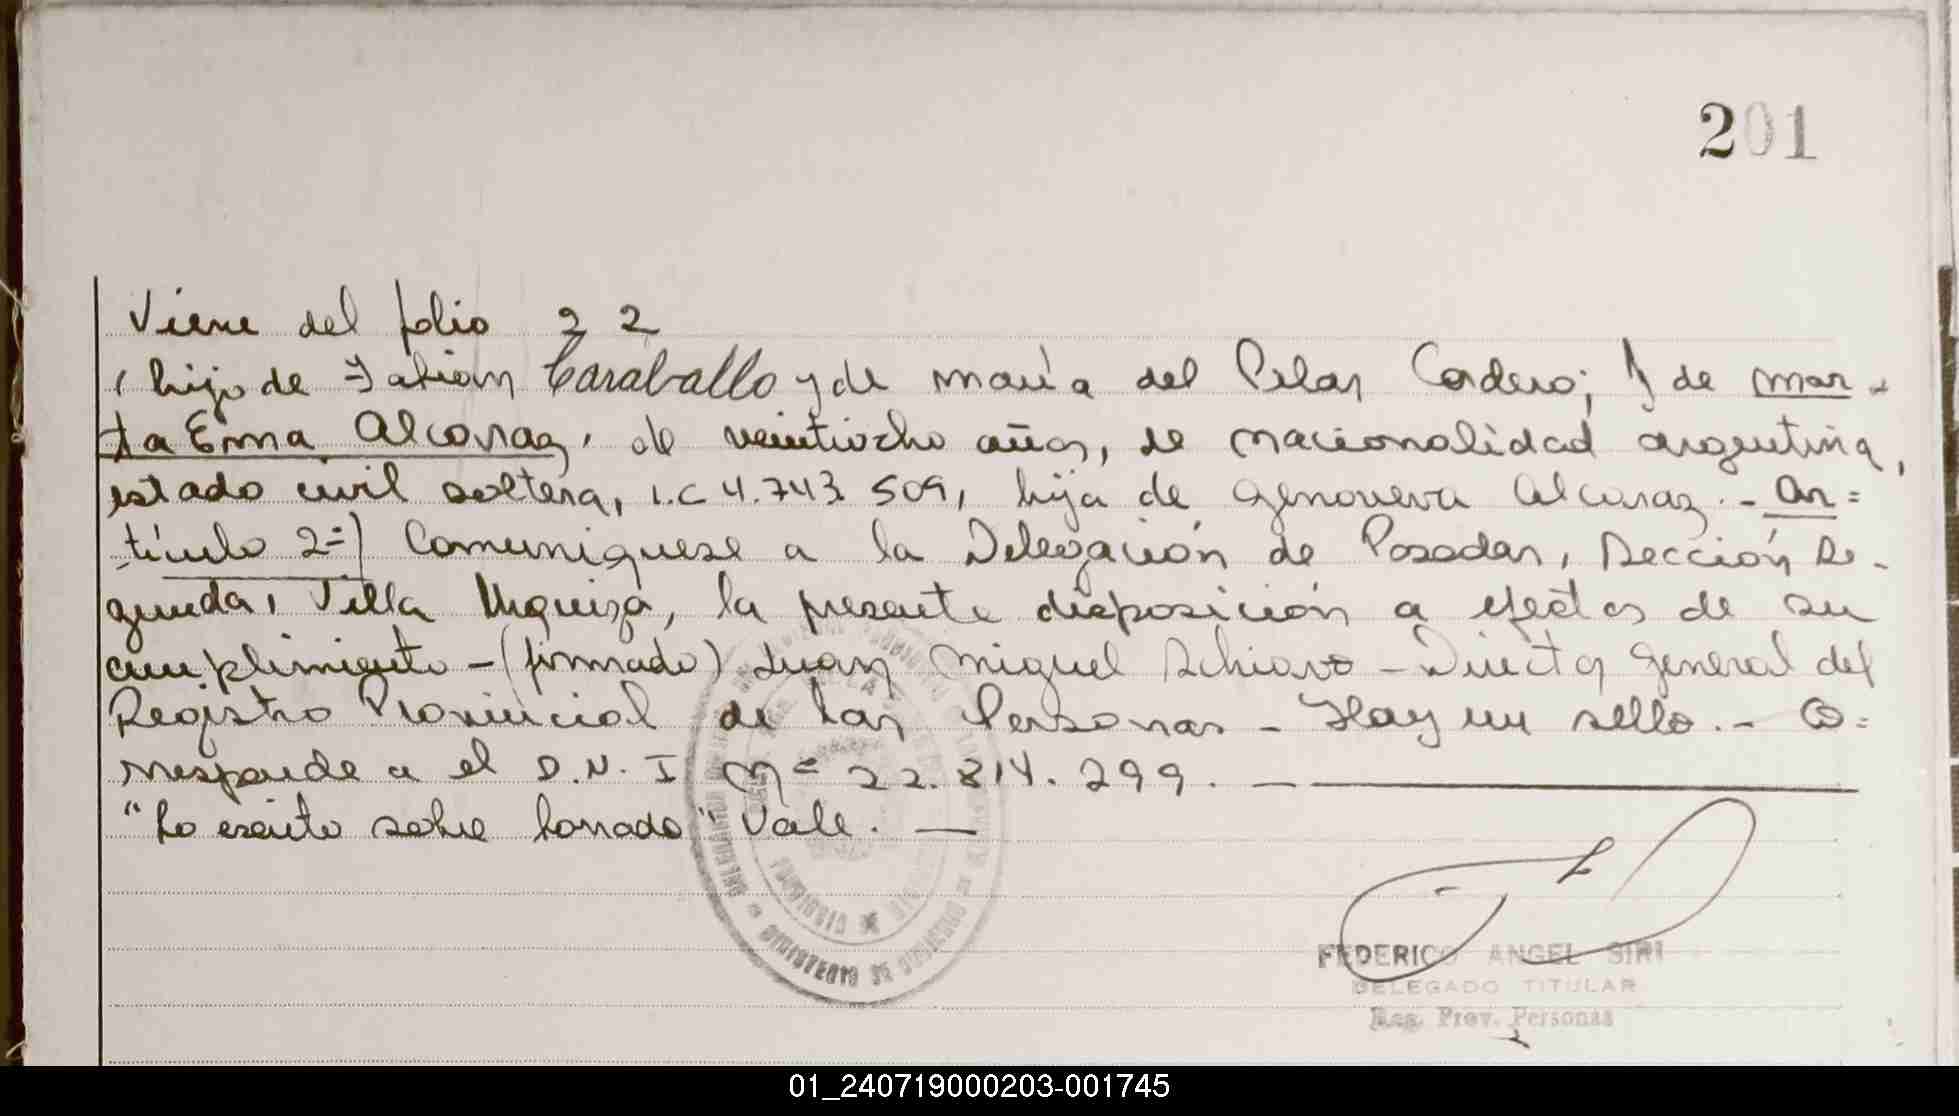 201
Viene del folio 22
, hijo de Fabian Caraballo y de maria del Pilar Cordero; y de mar-
ta Enna Alcaraz, de veintiocho años, de nacionalidad argentina,
estado civil soltera, L.C 4.743.509, hija de Genoveva Alcaraz.- Ar=
tículo 2º) Comuniquese a la Delegación de Posadas, Sección Se-
gunda, Villa Urquiza, la presente disposición a efectos de su
cumplimiento - (firmado) Juan Miguel Schiavo - Director General del
Registro Provincial de las Personas - Hay un sello.- Co=
rresponde a el D.N.I Nº 22.814.299.
"Lo escrito sobre borrado" Vale.
FEDERICO ANGEL SIRI
DELEGADO TITULAR
Reg. Prov. Personas
01_240719000203-001745